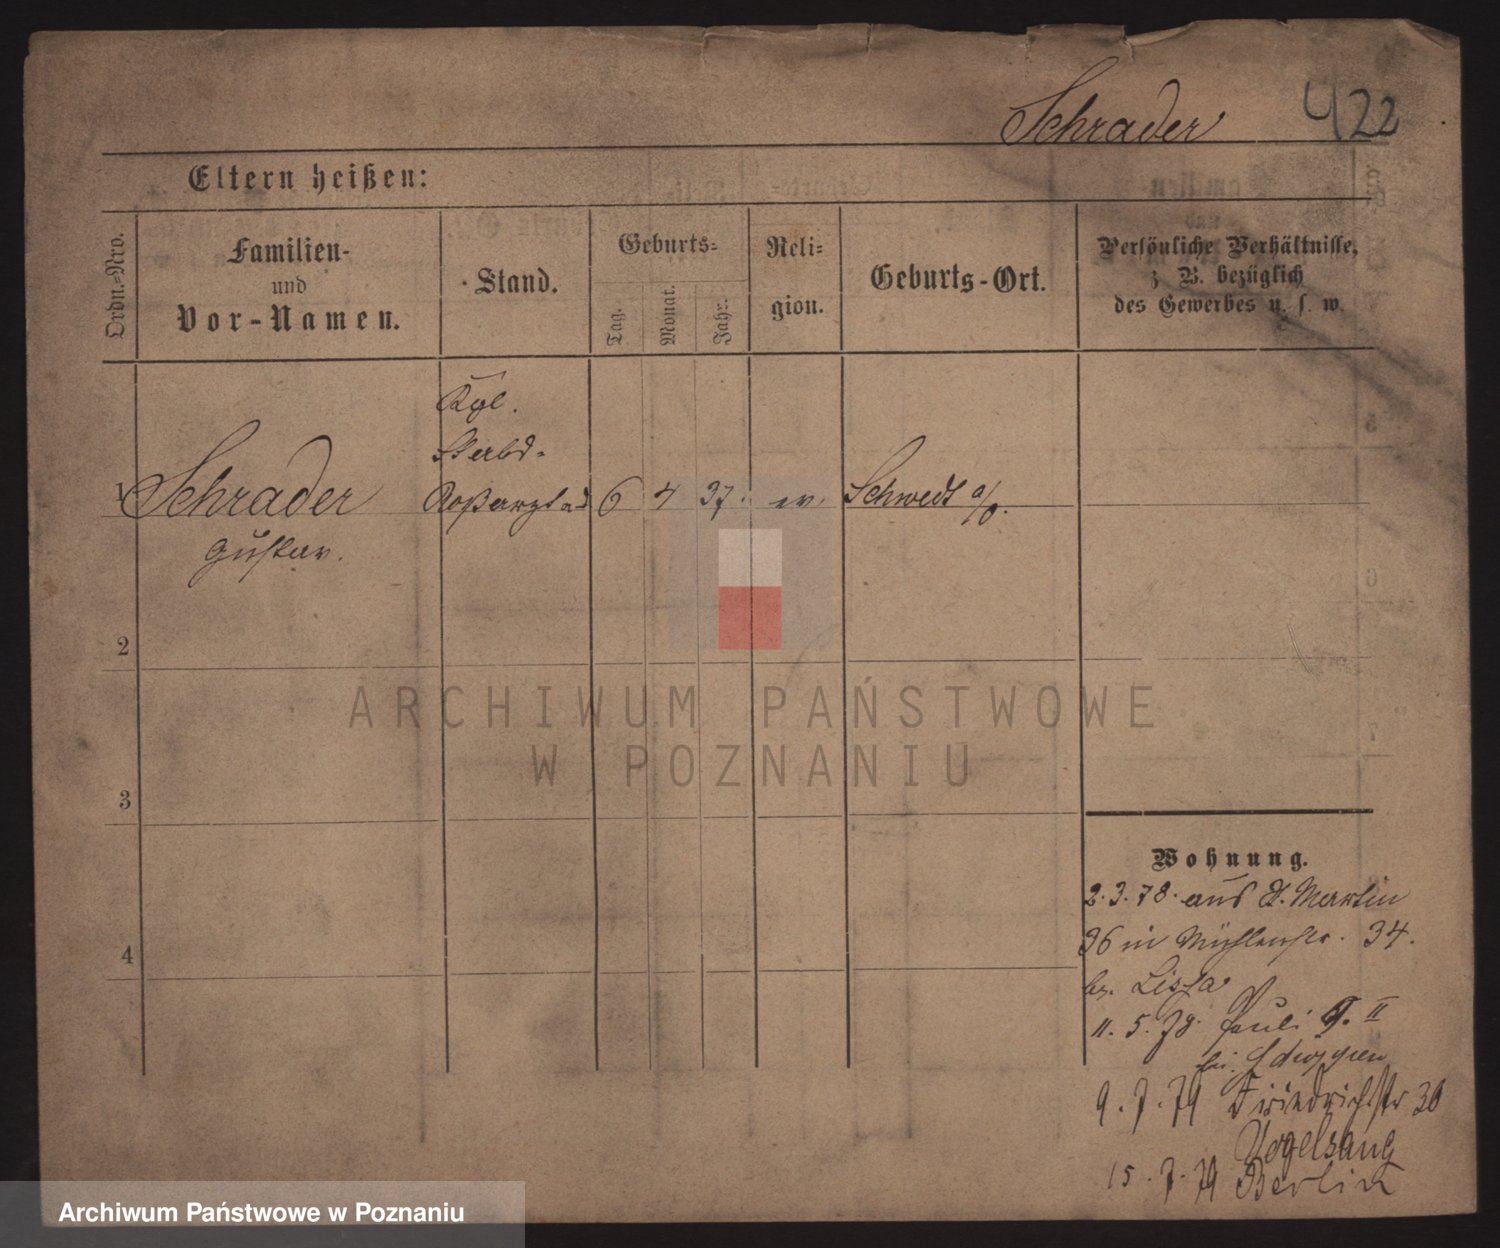 Schrader 422
Eltern heißen:
Ordn.=Nro.
Familien-
und
Vor-Namen.
Stand.
Geburts=
Tag.
Monat.
Jahr.
Reli=
gion.
Geburts-Ort.
Persönliche Verhältnisse,
z. B. bezüglich
des Gewerbes u. s. w.
Kgl.
1 Schrader Roßarzt a.d. 6 4 37. ev. Schwedt a/o.
Gustav.
2
3
4
Wohnung.
2.3.78. aus St. Martin
36 in Mühlenstr. 34.
Lissa
11.5.78. Pauli 9. II
9.7.79 Friedrichstr 30
Vogelsang
15.7.79 Berlin
ARCHIWUM PAŃSTWOWE
W POZNANIU
Archiwum Państwowe w Poznaniu